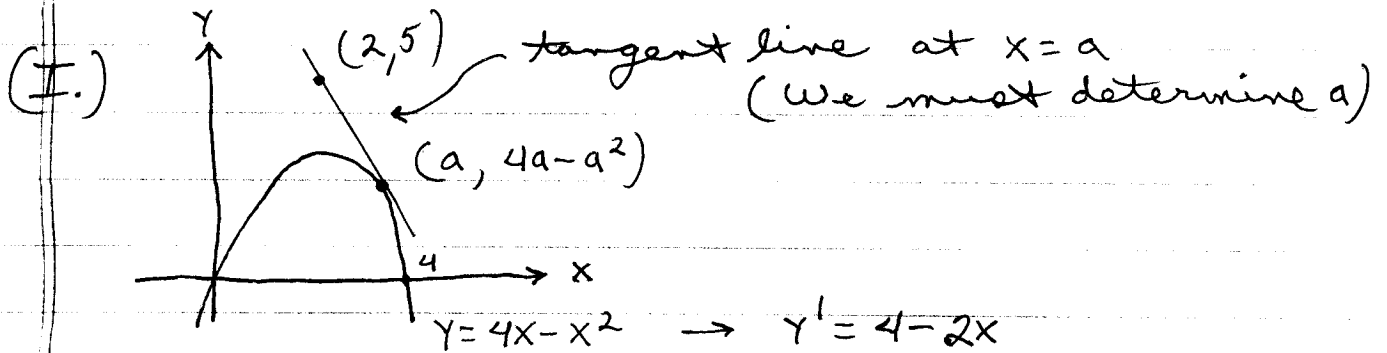 Y
(I.) (2,5) tangent line at x = a
(We must determine a)
(a, 4a-a²)
4
X
Y = 4x - x² → Y' = 4 - 2x